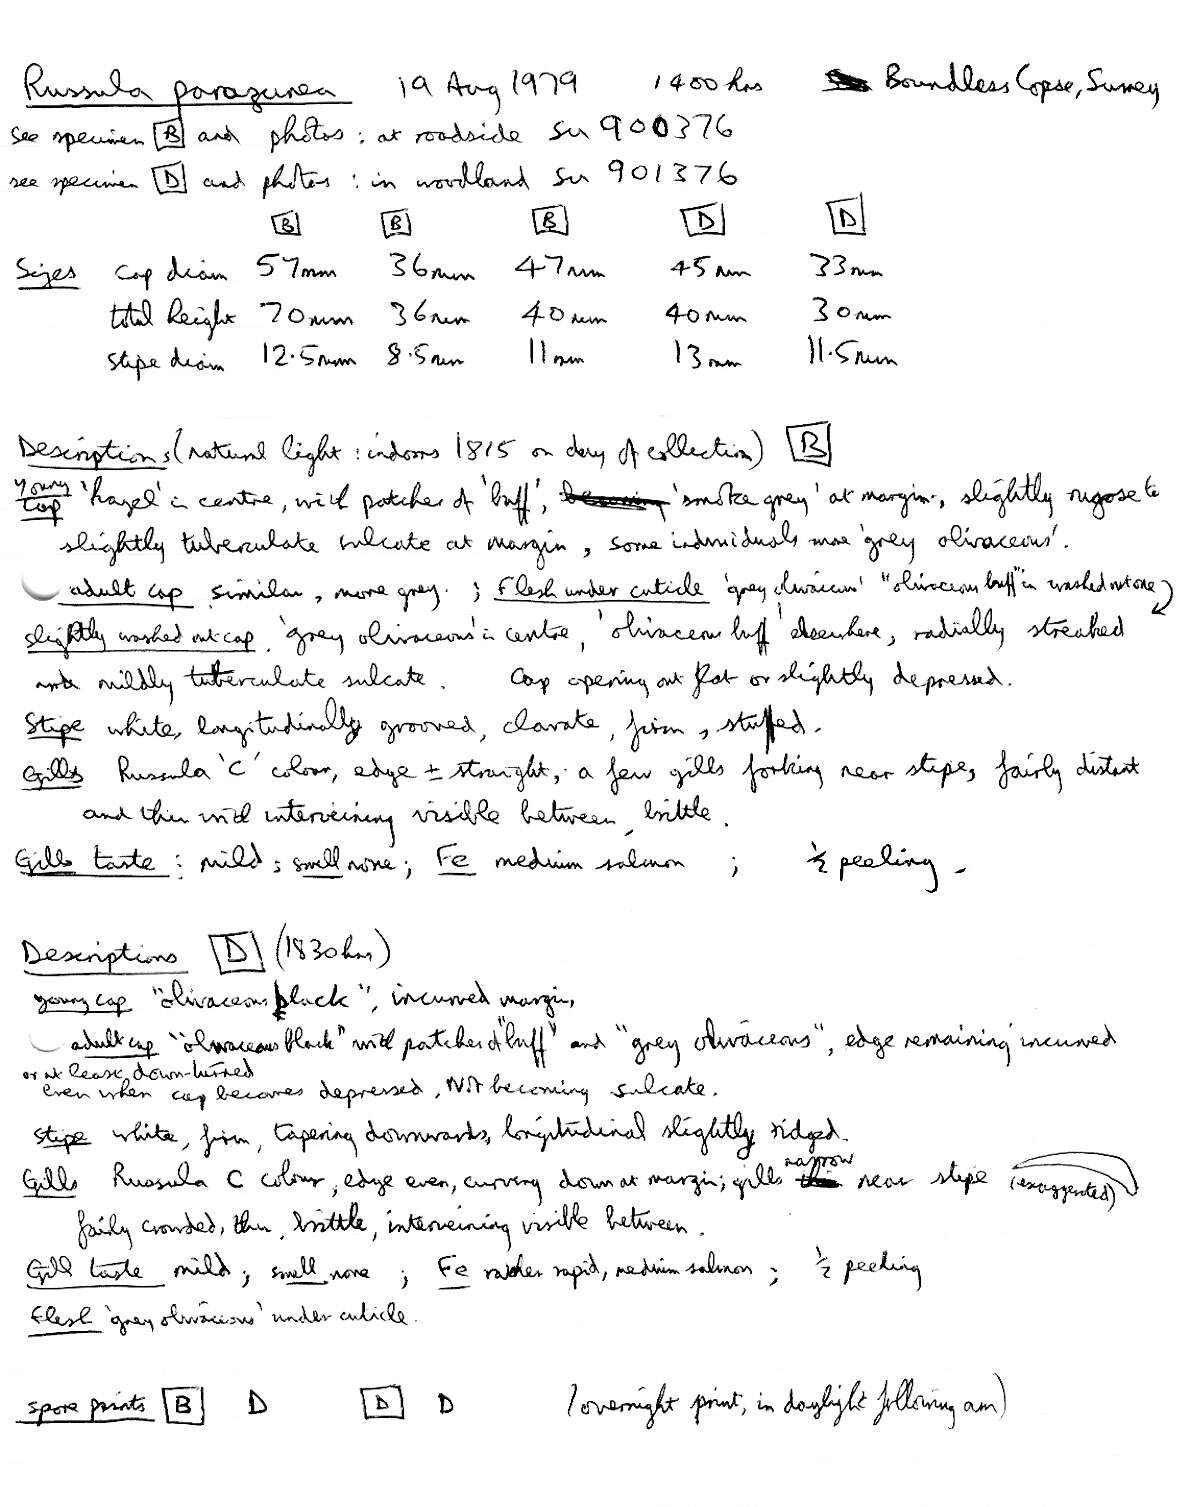 Russula parazurea 19 Aug 1979 1400 hrs Boundless Copse, Surrey
see specimen B and photos : at roadside SU 900376
see specimen D and photos : in woodland SU 901376
B B B D D
Sizes cap diam 57mm 36mm 47mm 45mm 33mm
total height 70mm 36mm 40mm 40mm 30mm
stipe diam 12.5mm 8.5mm 11mm 13mm 11.5mm
Descriptions (natural light : indoors 1815 on day of collection) B
young cap 'hazel' in centre, with patches of 'buff', 'smoke grey' at margin, slightly rugose to
slightly tuberculate sulcate at margin, some individuals more 'grey olivaceous'.
adult cap similar, more grey. ; Flesh under cuticle 'grey olivaceous' "olivaceous buff" in washed out one
slightly washed out cap 'grey olivaceous' in centre, 'olivaceous buff' elsewhere, radially streaked
mildly tuberculate sulcate. Cap opening out flat or slightly depressed.
Stipe white, longitudinally grooved, clavate, firm, stuffed.
Gills Russula 'C' colour, edge ± straight, a few gills forking near stipe, fairly distant
and thin with interveining visible between, brittle.
Gills taste : mild ; smell none ; Fe medium salmon ; ½ peeling -
Descriptions D (1830 hrs)
young cap "olivaceous black", incurved margin,
adult cap "olivaceous black" with patches of "buff" and "grey olivaceous", edge remaining incurved
or at least, down-turned
even when cap becomes depressed, not becoming sulcate.
Stipe white, firm, tapering downwards, longitudinal slightly ridged.
Gills Russula C colour, edge even, curving down at margin; gills narrow near stipe (exaggerated)
fairly crowded, thin, brittle, interveining visible between.
Gill taste mild ; smell none ; Fe rather rapid, medium salmon ; ½ peeling
Flesh 'grey olivaceous' under cuticle.
spore prints B D D D (overnight print, in daylight following am)